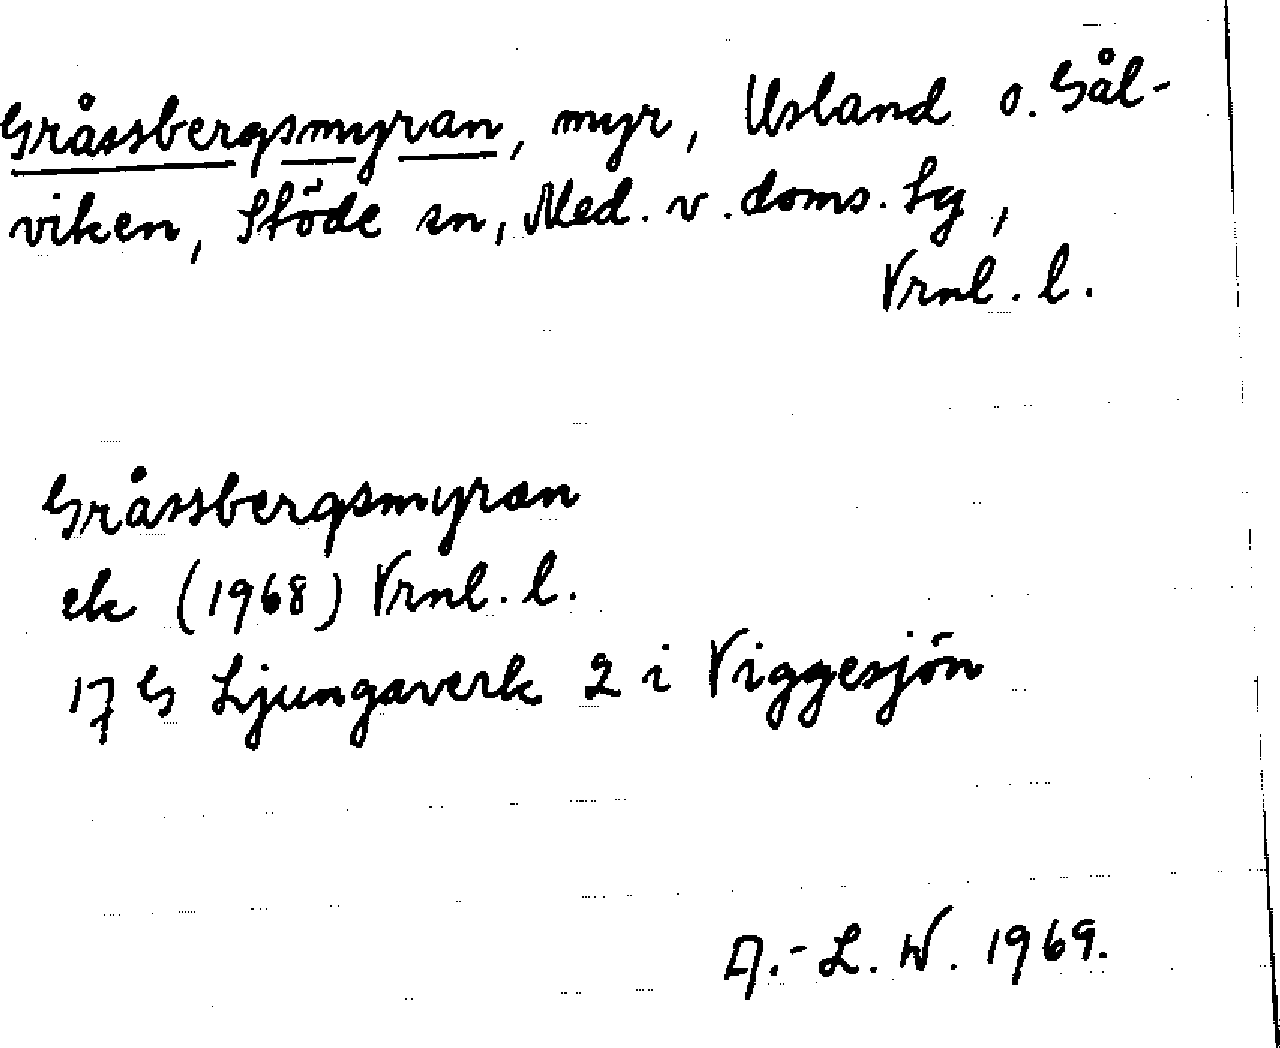 Gråssbergsmyran, myr, Usland o. Sål-
viken, Stöde sn, Med. v. doms. tg,
Vrnl. l.
Gråssbergsmyran
ek (1968) Vrnl. l.
17 G Ljungaverk 2 i Viggesjön
A.-L. W. 1969.